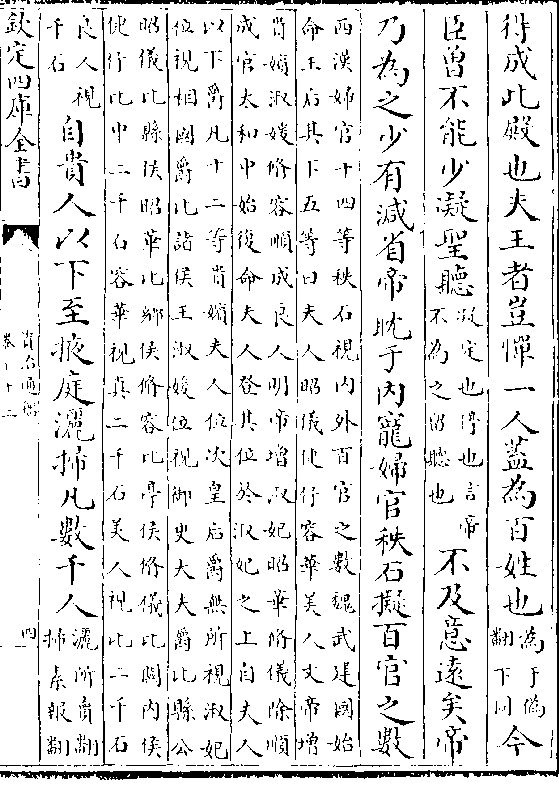 得成此殿也夫王者豈憚一人蓋為百姓也為于偽翻下同今
臣曾不能少凝聖聽凝定也停也言帝不為之留聽也不及意遠矣帝
乃為之少有減省帝耽于內寵婦官秩石擬百官之數
西漢婦官十四等秩石視内外百官之數魏武建國始
命王后其下五等曰夫人昭儀倢伃容華美人文帝增
貴嬪淑媛脩容順成良人明帝增淑妃昭華脩儀除順
成官太和中始復命夫人登其位於淑妃之上自夫人
以下爵凡十二等貴嬪夫人位次皇后爵無所視淑妃
位視相國爵比諸侯王淑媛位視御史大夫爵比縣公
昭儀比縣侯昭華比鄉侯脩容比亭侯脩儀比關内侯
倢伃比中二千石容華視真二千石美人視比二千石
良人視千石自貴人以下至掖庭灑掃凡數千人灑所賣翻掃素報翻
欽定四庫全書
資治通鑑
四